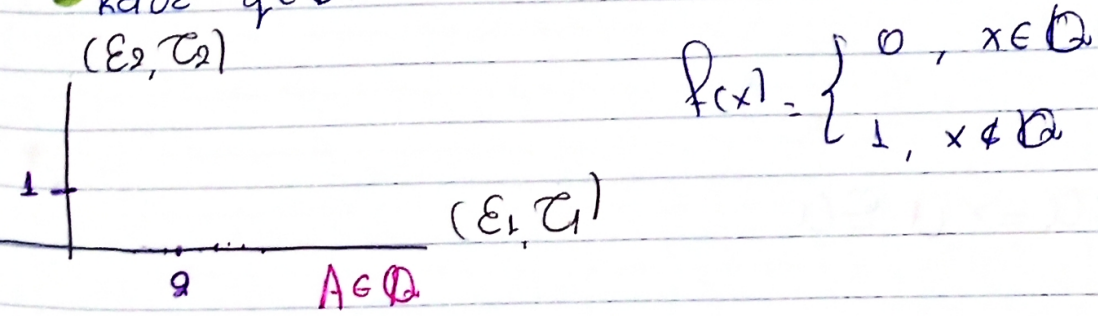 (ε₂, τ₂)
f(x) = { 0 , x ∈ ℚ
1 , x ∉ ℚ
1
(ε₁, τ₁)
2
A ∈ ℚ